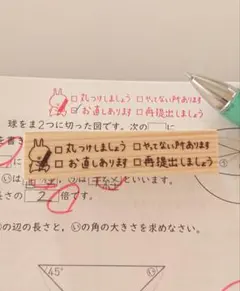 □丸つけしましょう □やってない所あります
☑お直しあります □再提出しましょう
球をま2つに切った図です。次の□に
□丸つけしましょう □やってない所あります
□お直しあります □再提出しましょう
といいます。
長さの 2 倍です。
の辺の長さと、㋑の角の大きさを求めなさい。
45°